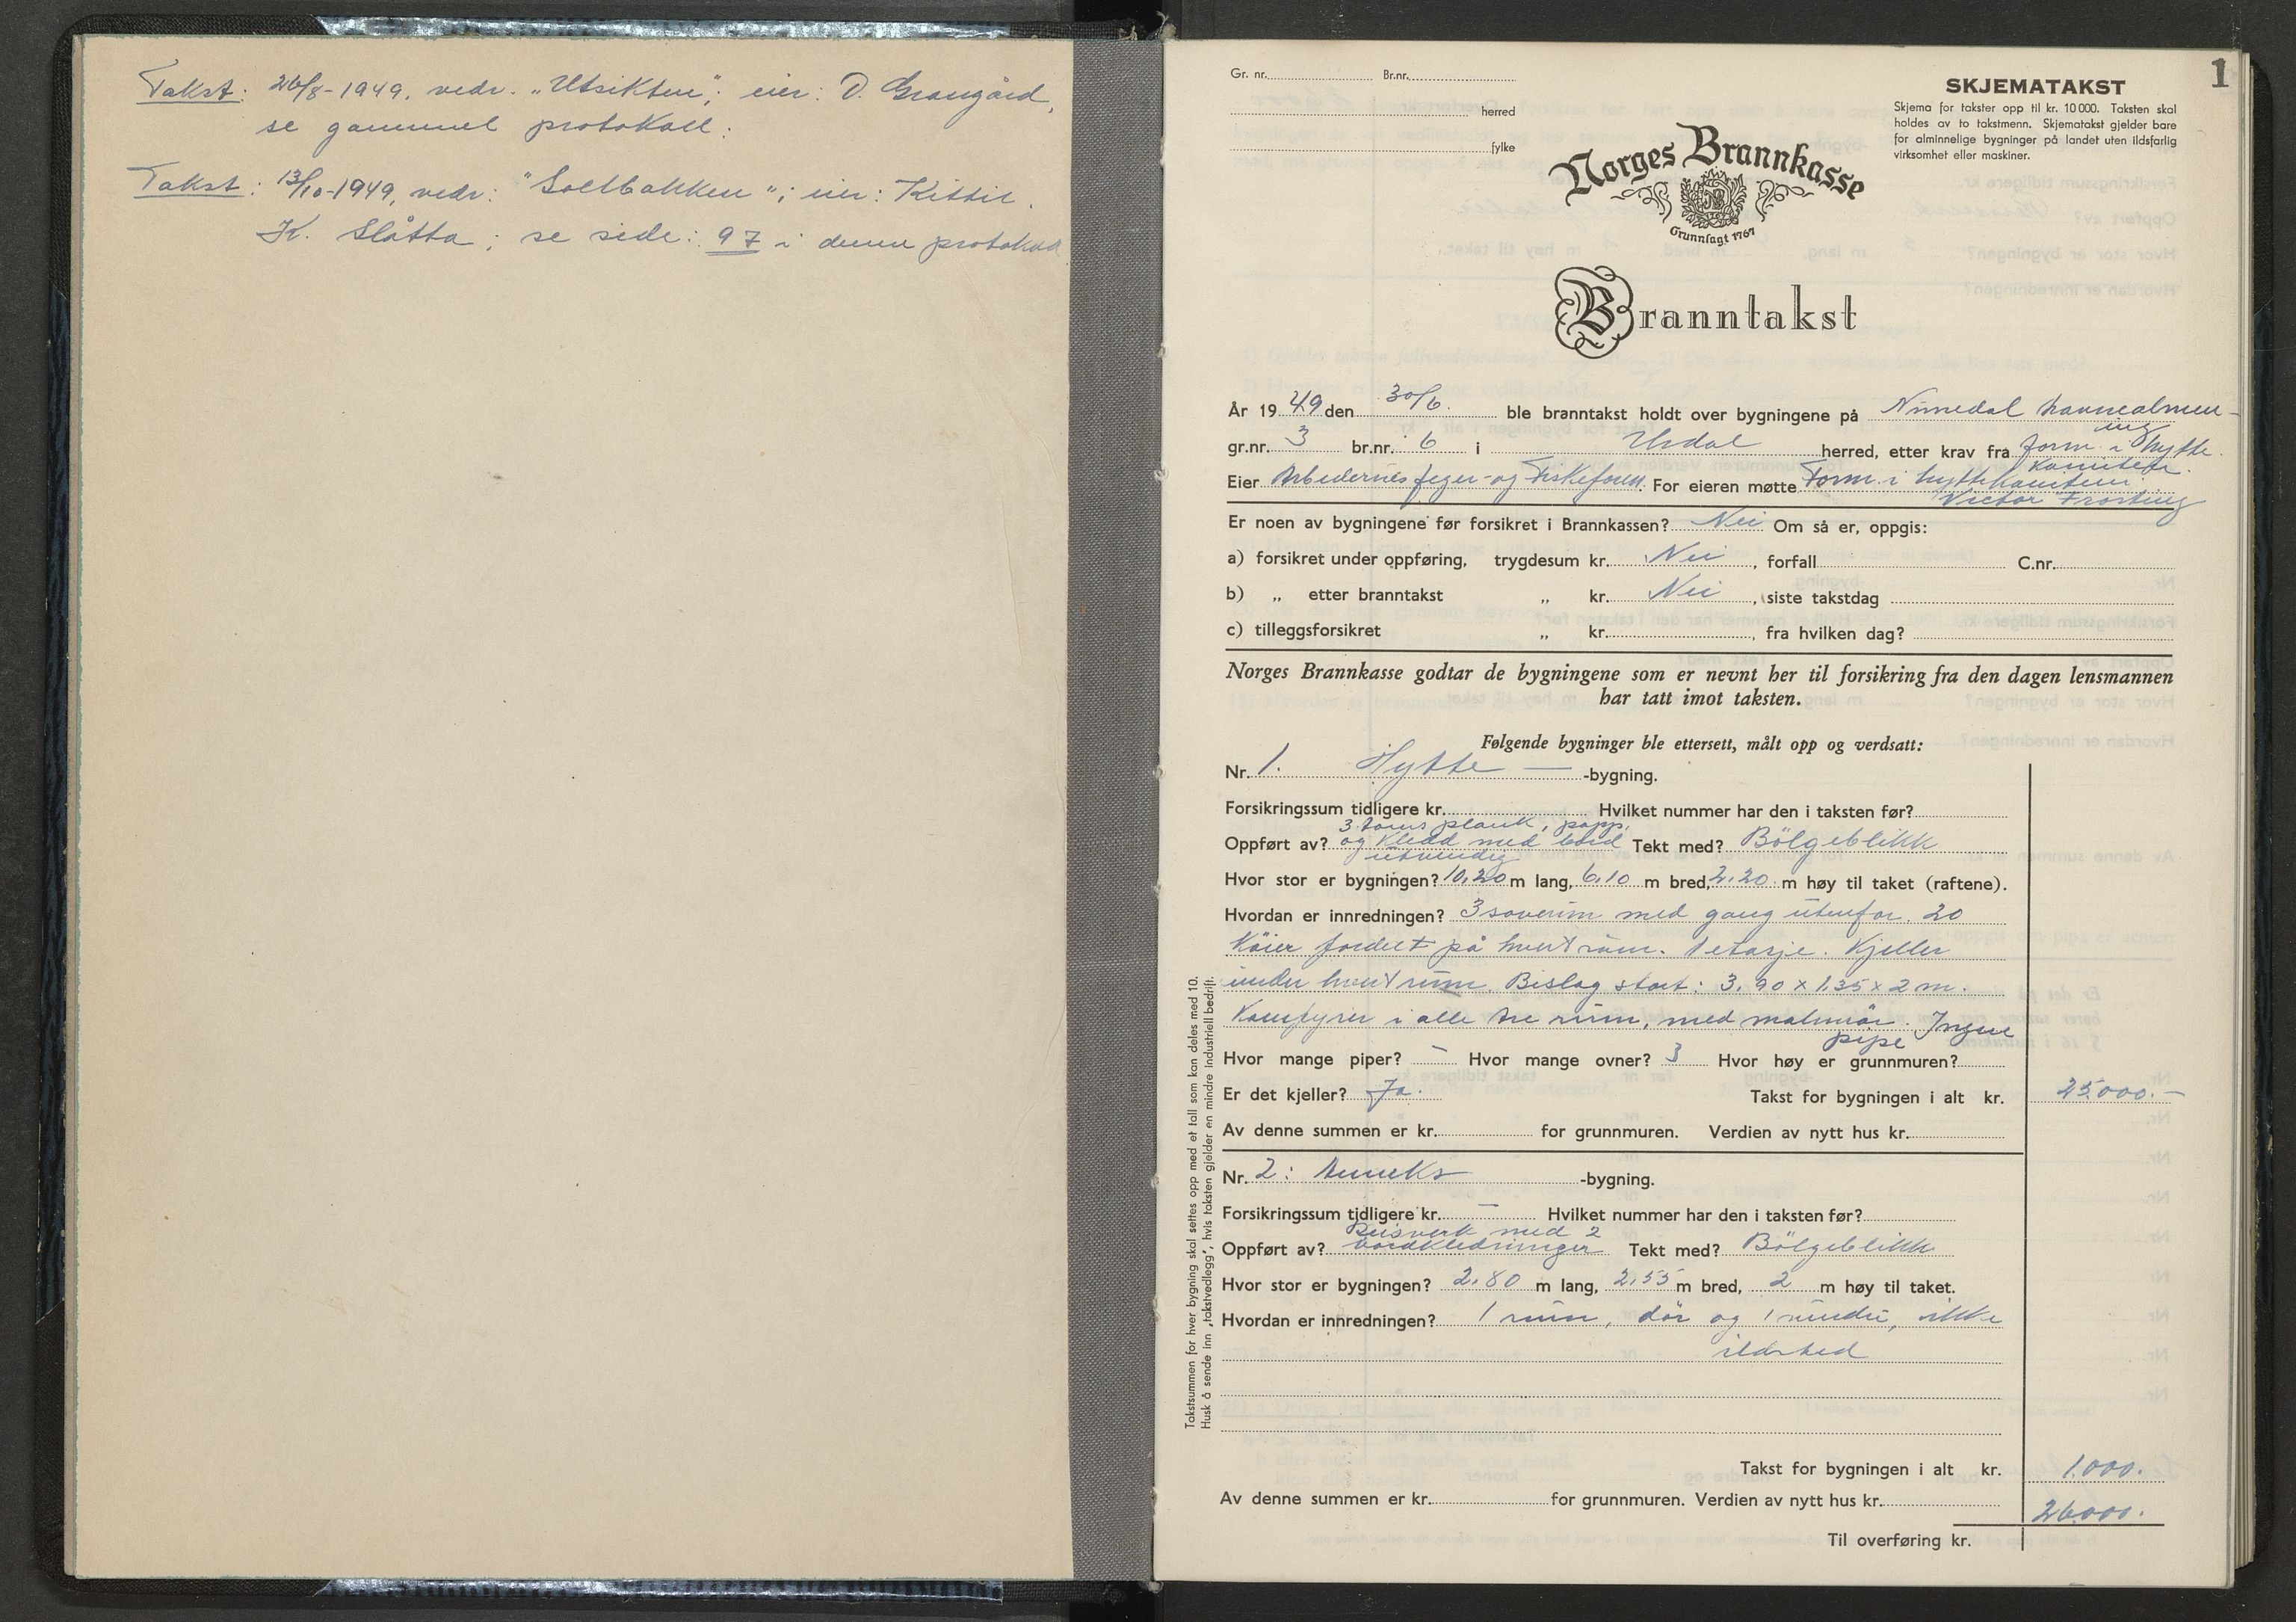 Takst: 26/8-1949, vedr. „Utsikten"; eier: O. Grangård,
se gammel protokoll.
Takst: 13/10-1949, vedr: "Solbakken"; eier: Kittil
K. Slåtta; se side: 97 i denne protokoll
1
Gr. nr. Br.nr.
herred
fylke
SKJEMATAKST
Skjema for takster opp til kr. 10 000. Taksten skal
holdes av to takstmenn. Skjematakst gjelder bare
for alminnelige bygninger på landet uten ildsfarlig
virksomhet eller maskiner.
Norges Brannkasse
Grunnlagt 1767
Branntakst
År 1949 den 30/6. ble branntakst holdt over bygningene på Nimedal havnealmen-
ing
gr.nr. 3 br.nr. 6 i Uvdal herred, etter krav fra form. i hytte
komiteen.
Eier Arbedernes jeger- og Fiskeforen. For eieren møtte Form. i hyttekomiteen
Victor
Er noen av bygningene før forsikret i Brannkassen? Nei Om så er, oppgis:
a) forsikret under oppføring, trygdesum kr. Nei, forfall C.nr.
b) „ etter branntakst „ kr. Nei, siste takstdag
c) tilleggsforsikret „ kr. , fra hvilken dag?
Norges Brannkasse godtar de bygningene som er nevnt her til forsikring fra den dagen lensmannen
har tatt imot taksten.
Følgende bygninger ble ettersett, målt opp og verdsatt:
Nr. 1. Hytte — -bygning.
Forsikringssum tidligere kr. Hvilket nummer har den i taksten før?
3 toms plank, papp,
Oppført av? og kledd med bord Tekt med? Bölgeblikk
utvendig
Hvor stor er bygningen? 10,20 m lang, 6,10 m bred, 2,20 m høy til taket (raftene).
Hvordan er innredningen? 3 soverum med gang utenfor. 20
Køier fordelt på hvert rum. 1 etasje. Kjeller
under hvert rum. Bislag stort: 3,90 x 1,35 x 2 m.
Komfyrer i alle tre rum, med malmrör. Ingen
pipe
Hvor mange piper? - Hvor mange ovner? 3 Hvor høy er grunnmuren?
Er det kjeller? Ja. Takst for bygningen i alt kr. 25.000.-
Av denne summen er kr. for grunnmuren. Verdien av nytt hus kr.
Nr. 2: Anneks -bygning.
Forsikringssum tidligere kr. - Hvilket nummer har den i taksten før?
Reisverk med 2
Oppført av? bordkledninger Tekt med? Bölgeblikk
Hvor stor er bygningen? 2,80 m lang, 2,55 m bred, 2 m høy til taket.
Hvordan er innredningen? 1 rum, dör og 1 vindu, ikke
ildsted
Takst for bygningen i alt kr. 1.000.
Av denne summen er kr. for grunnmuren. Verdien av nytt hus kr.
26.000.
Til overføring kr.
Takstsummen for hver bygning skal settes opp med et tall som kan deles med 10.
Husk å sende inn „takstvedlegg", hvis taksten gjelder en mindre industriell bedrift.